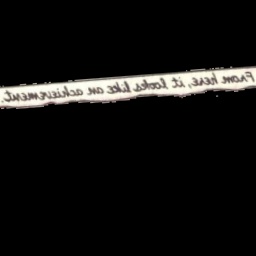 From here, it looks like an achievement.